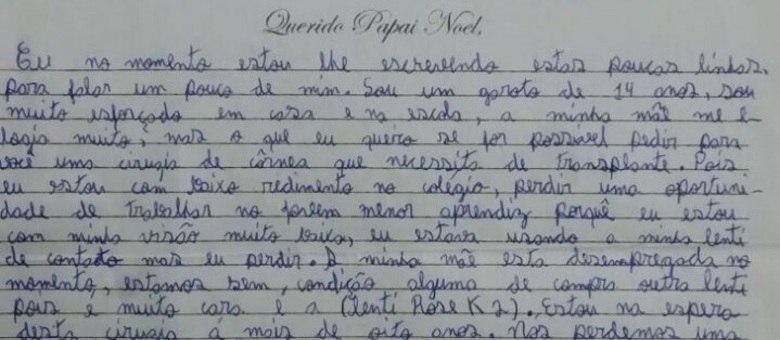 Querido Papai Noel,
Eu no momento estou lhe escrevendo estas poucas linhas.
para falar um pouco de mim. Sou um garoto de 14 anos, sou
muito esforçado em casa e na escola, a minha mãe me e-
logia muito, mas o que eu queiro se for possivel pedir para
você uma cirugia de córnea que necessita de transplante. Pois
eu estou com baixo redimento no colegio, perdir uma oportuni-
dade de trabalhar no jovem menor aprendiz porquê eu estou
com minha visão muito baixa, eu estava usando a minha lenti
de contato mas eu perdir. A minha mãe esta desempregada no
momento, estamos sem, condição alguma de compra outra lenti
pois e muito cara e a (lenti Rose K 2). Estou na espera
desta cirugia a mais de oito anos. Nos perdemos uma